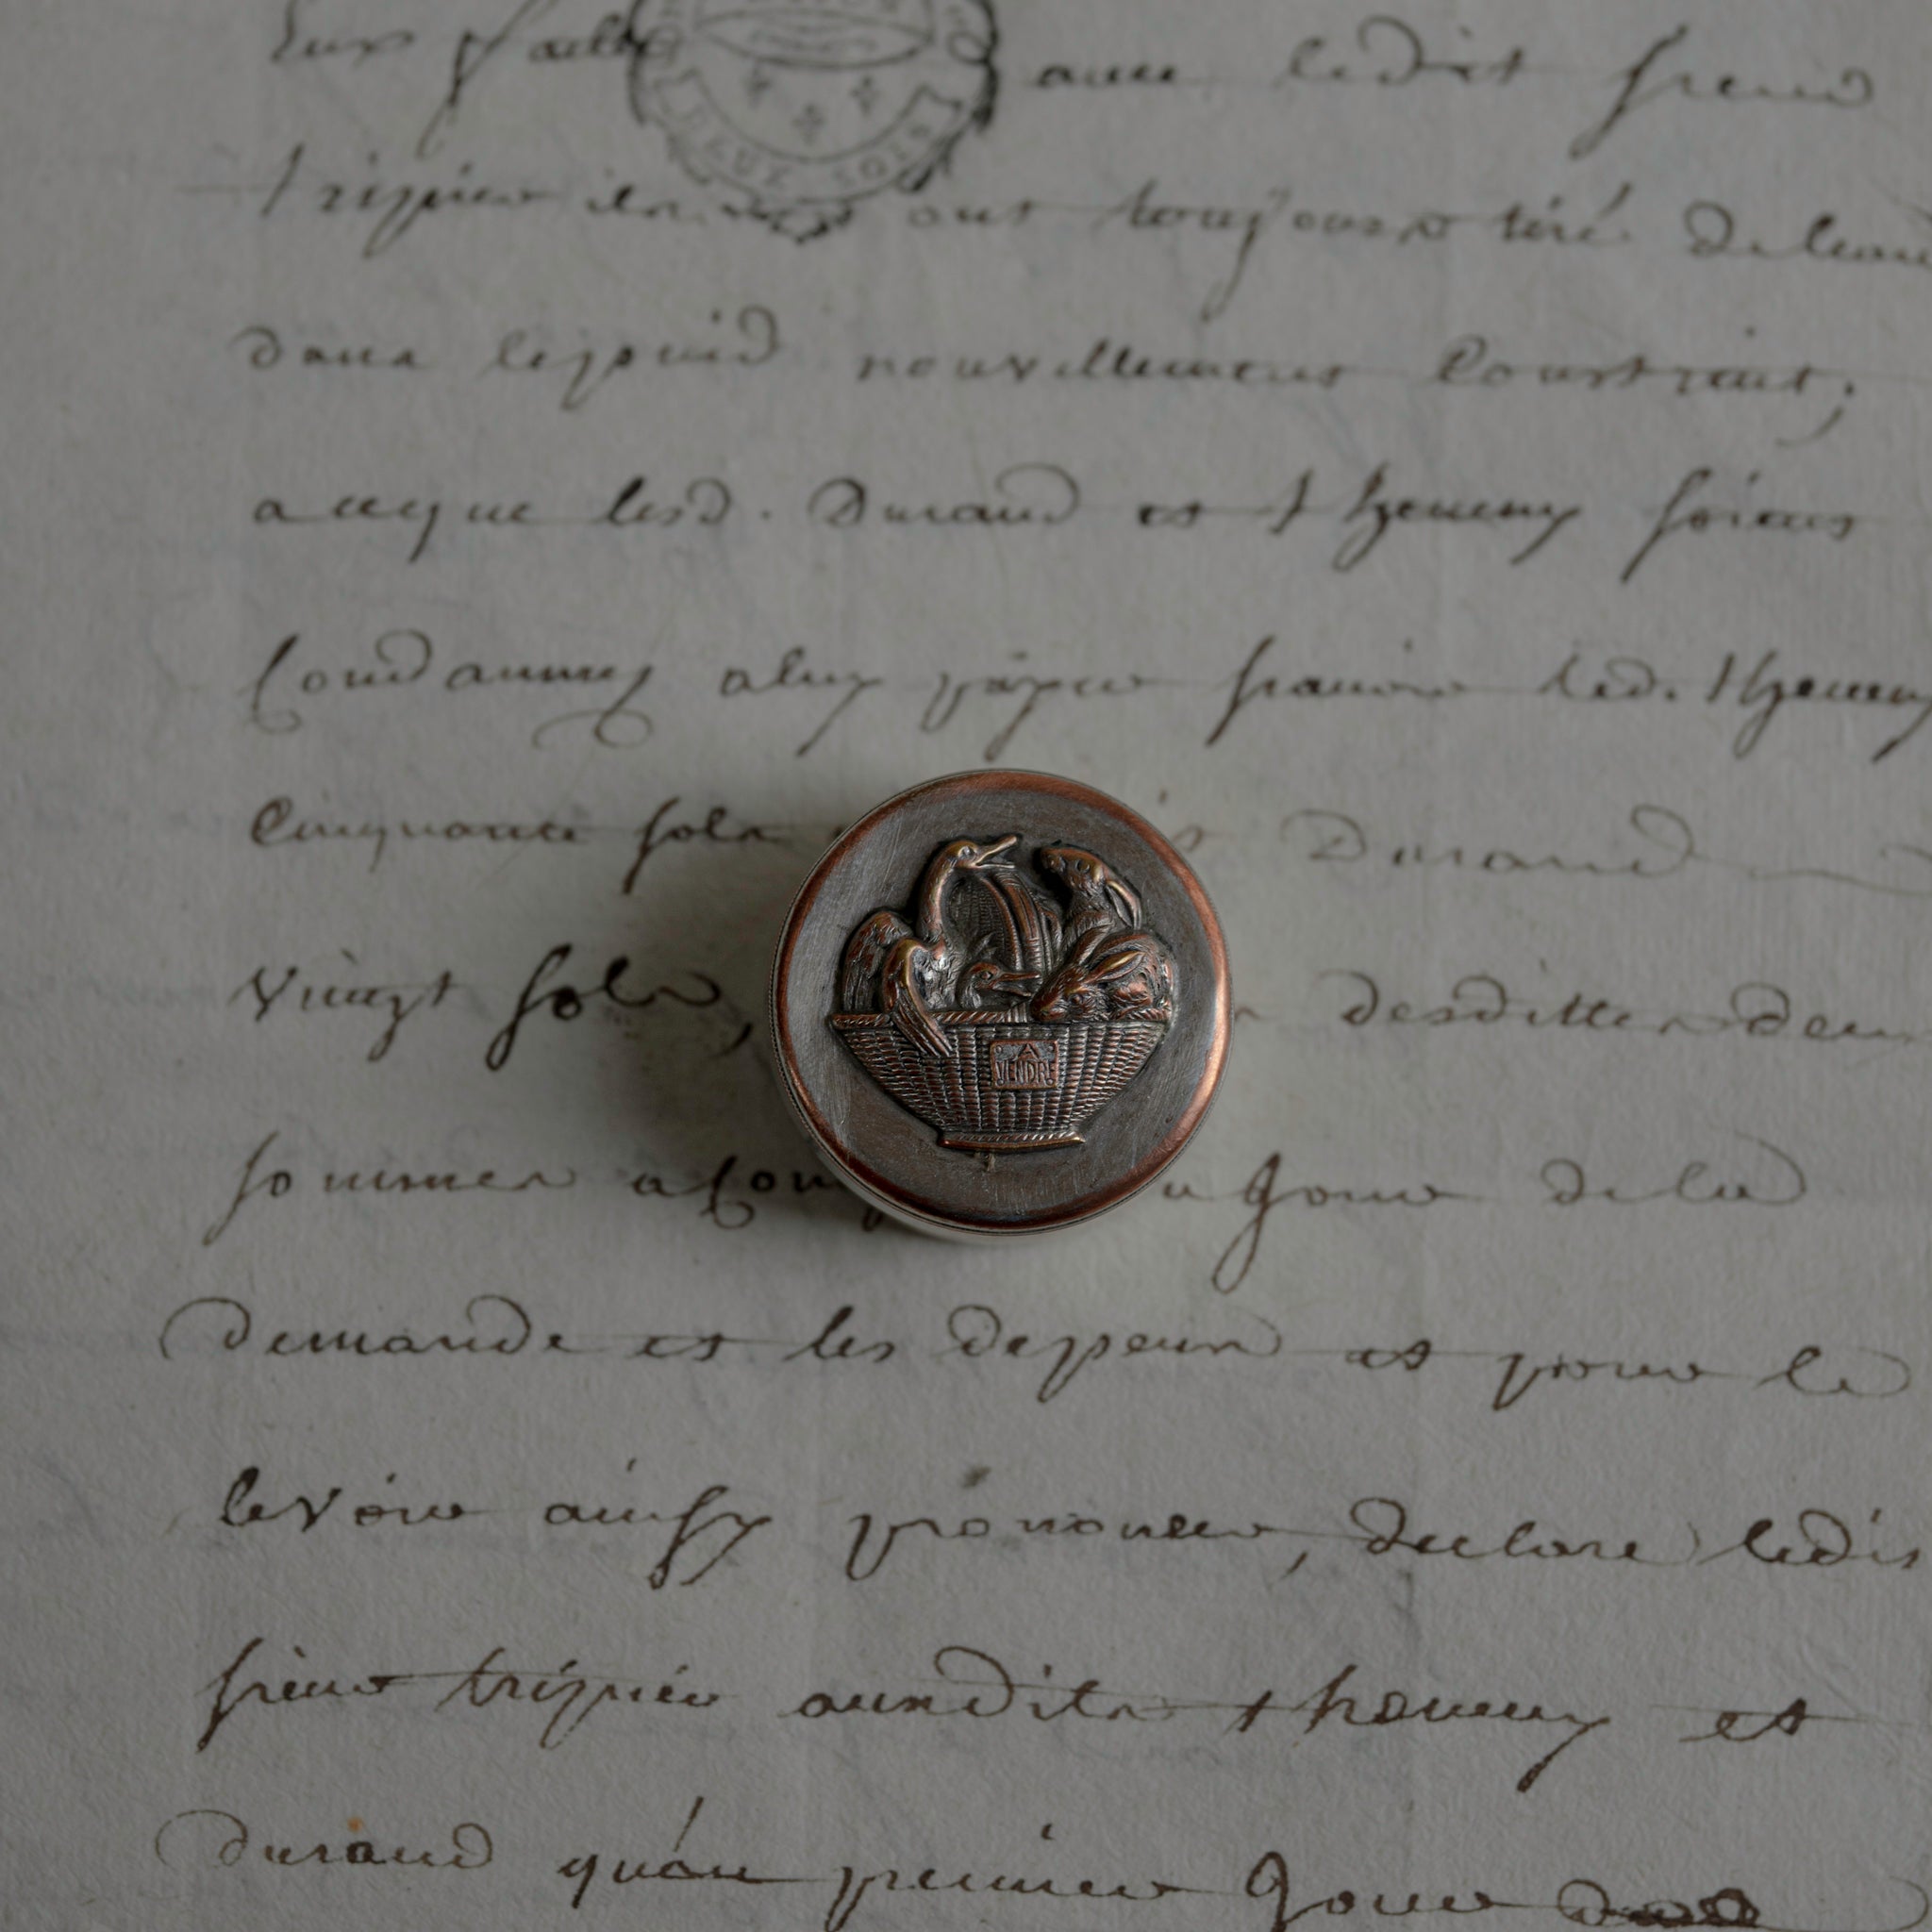 avec ledit sieur
tripier ils ont toujours tiré de leau
dans le puid nouvellement Construit;
a ceque lesd. Durand et theveny soient
Condamnés a luy payer savoir led. Theveny
Cinquante sols Durand
vingt sols, desdittes deux
sommes a du jour de lad
demande et les depens et pour le
se voir ainsy prononcer, declare ledit
sieur tripier auxdits theveny et
durand qu'au premier jour
A
VENDRE